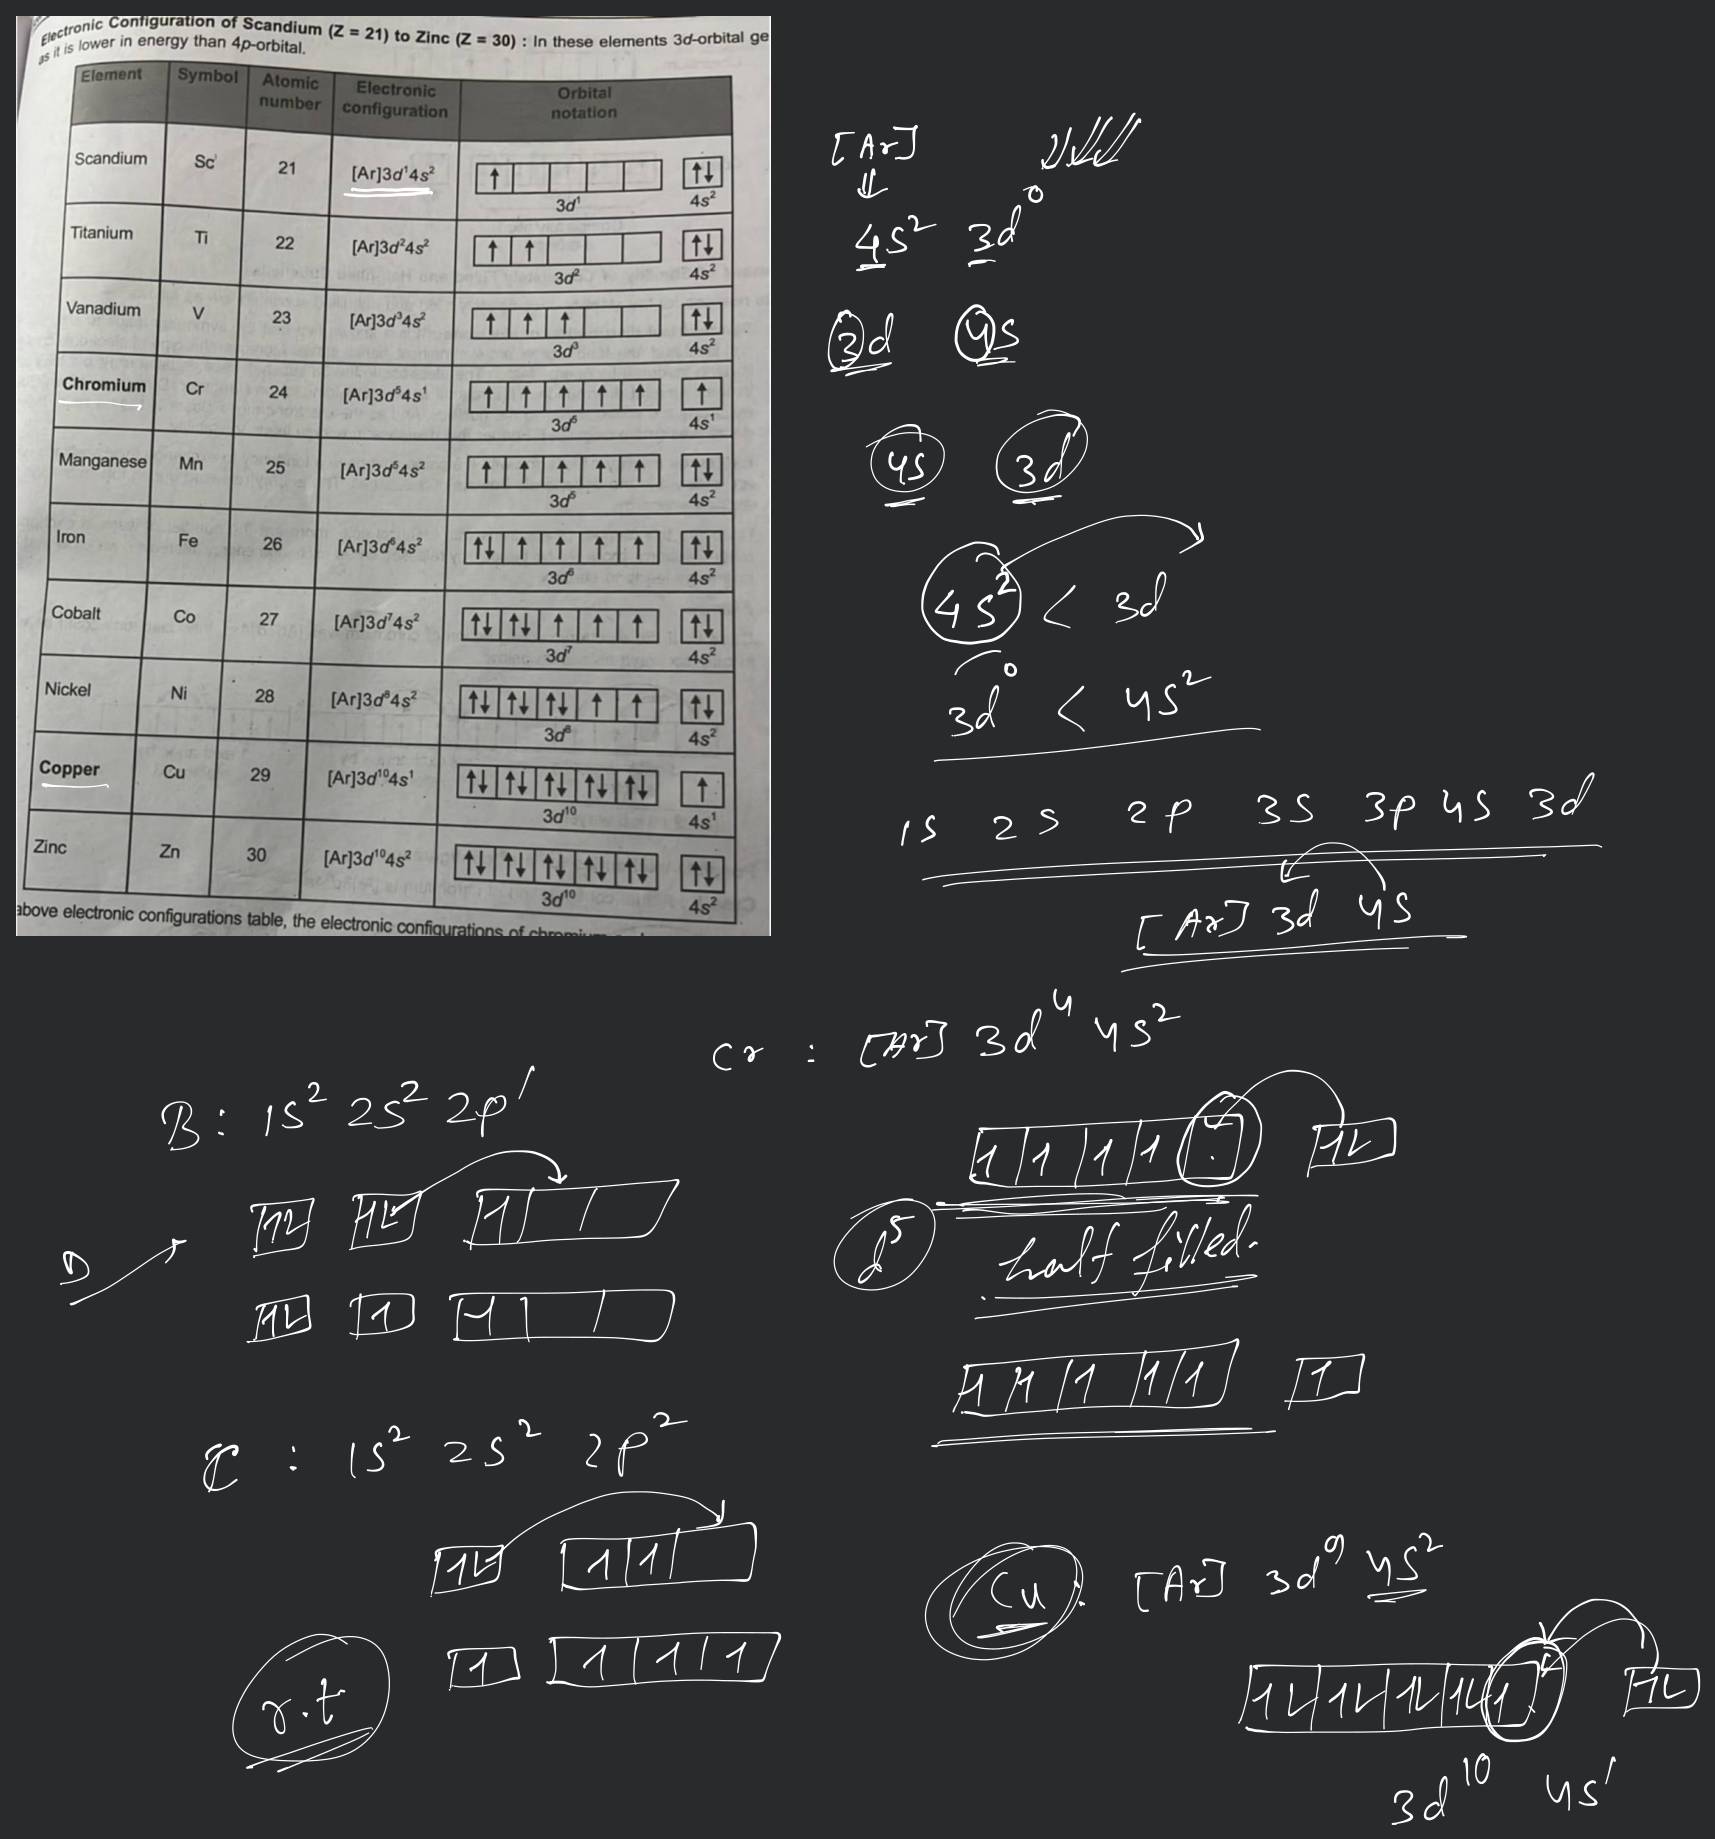 Electronic Configuration of Scandium (Z = 21) to Zinc (Z = 30) : In these elements 3d-orbital ge
as it is lower in energy than 4p-orbital.
Element Symbol Atomic number Electronic configuration Orbital notation
Scandium Sc 21 [Ar]3d¹4s² ↑ 3d¹ ↑↓ 4s²
Titanium Ti 22 [Ar]3d²4s² ↑ ↑ 3d² ↑↓ 4s²
Vanadium V 23 [Ar]3d³4s² ↑ ↑ ↑ 3d³ ↑↓ 4s²
Chromium Cr 24 [Ar]3d⁵4s¹ ↑ ↑ ↑ ↑ ↑ 3d⁵ ↑ 4s¹
Manganese Mn 25 [Ar]3d⁵4s² ↑ ↑ ↑ ↑ ↑ 3d⁵ ↑↓ 4s²
Iron Fe 26 [Ar]3d⁶4s² ↑↓ ↑ ↑ ↑ ↑ 3d⁶ ↑↓ 4s²
Cobalt Co 27 [Ar]3d⁷4s² ↑↓ ↑↓ ↑ ↑ ↑ 3d⁷ ↑↓ 4s²
Nickel Ni 28 [Ar]3d⁸4s² ↑↓ ↑↓ ↑↓ ↑ ↑ 3d⁸ ↑↓ 4s²
Copper Cu 29 [Ar]3d¹⁰4s¹ ↑↓ ↑↓ ↑↓ ↑↓ ↑↓ 3d¹⁰ ↑ 4s¹
Zinc Zn 30 [Ar]3d¹⁰4s² ↑↓ ↑↓ ↑↓ ↑↓ ↑↓ 3d¹⁰ ↑↓ 4s²
above electronic configurations table, the electronic configurations of
[Ar]
4s² 3d⁰
3d 4s
4s 3d
4s² < 3d
3d⁰ < 4s²
1s 2s 2p 3s 3p 4s 3d
[Ar] 3d 4s
Cr : [Ar] 3d⁴ 4s²
1 1 1 1 1L
d⁵ half filled.
1 1 1 1 1 1
B: 1s² 2s² 2p¹
1L 1L 1
1L 1 1
C : 1s² 2s² 2p²
1L 1 1
1 1 1 1
r.t
Cu : [Ar] 3d⁹ 4s²
1L 1L 1L 1L 1 1L
3d¹⁰ 4s¹